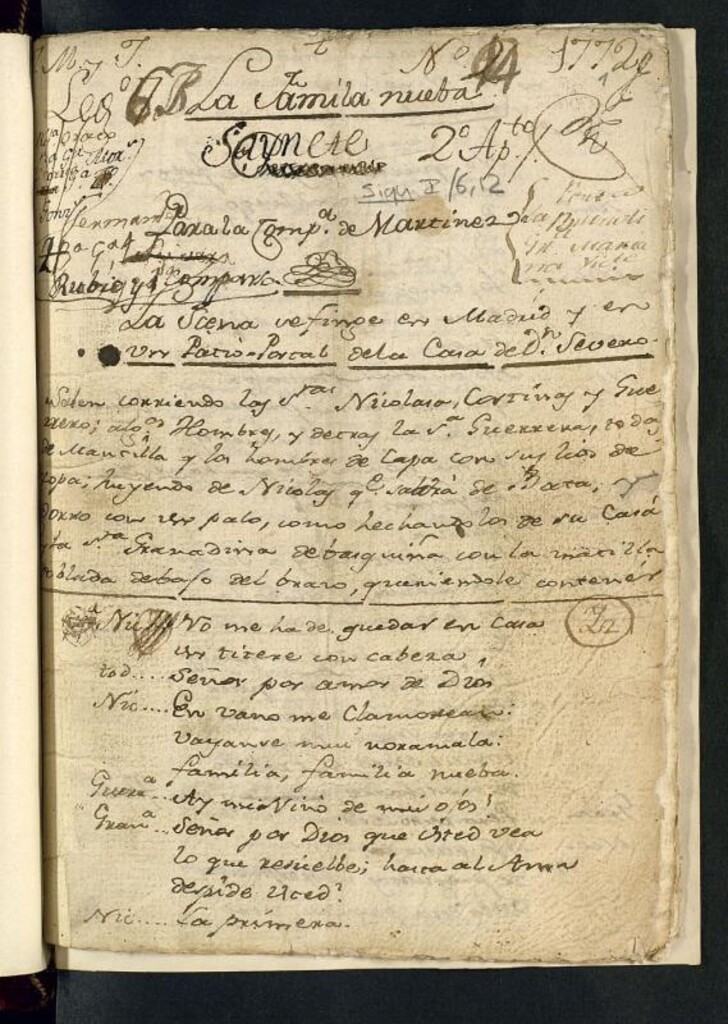 J. M. y J. N.º 24 1772
Leg.º 6 B La Familia nueba
Saynete 2.º Ap.to
Sign I /6, 12
Para la Comp.a de Martinez
Rubio y Comparsa
La Scena se finge en Madrid y en
un Patio-Portal de la Casa de D.n Severo.
Salen corriendo las S.ras Nicolasa, Cortinas y Gue
rrero; alg.os Hombres, y detras la S.a Guerrera, todas
de Mantilla y los hombres de Capa con sus lios de
ropa; huyendo de Nicolas q.e saldrá de Bata, y
Gorro con un palo, como hechandolos de su Casa
y la S.ra Granadina de basquiña con la mantilla
doblada debajo del brazo, queriendole contener
Nic. No me ha de quedar en Casa
un titere con cabeza
tod.... Señor por amor de Dios
Nic.... En vano me Clamorean:
vayanse muy noramala:
familia, familia nueba.
Guerr.a.. Ay mi Vino de mis ojos!
Gran.a.. Señor por Dios que Usted vea
lo que resuelbe; hasta al Ama
despide Usted?
Nic.... La primera.
1